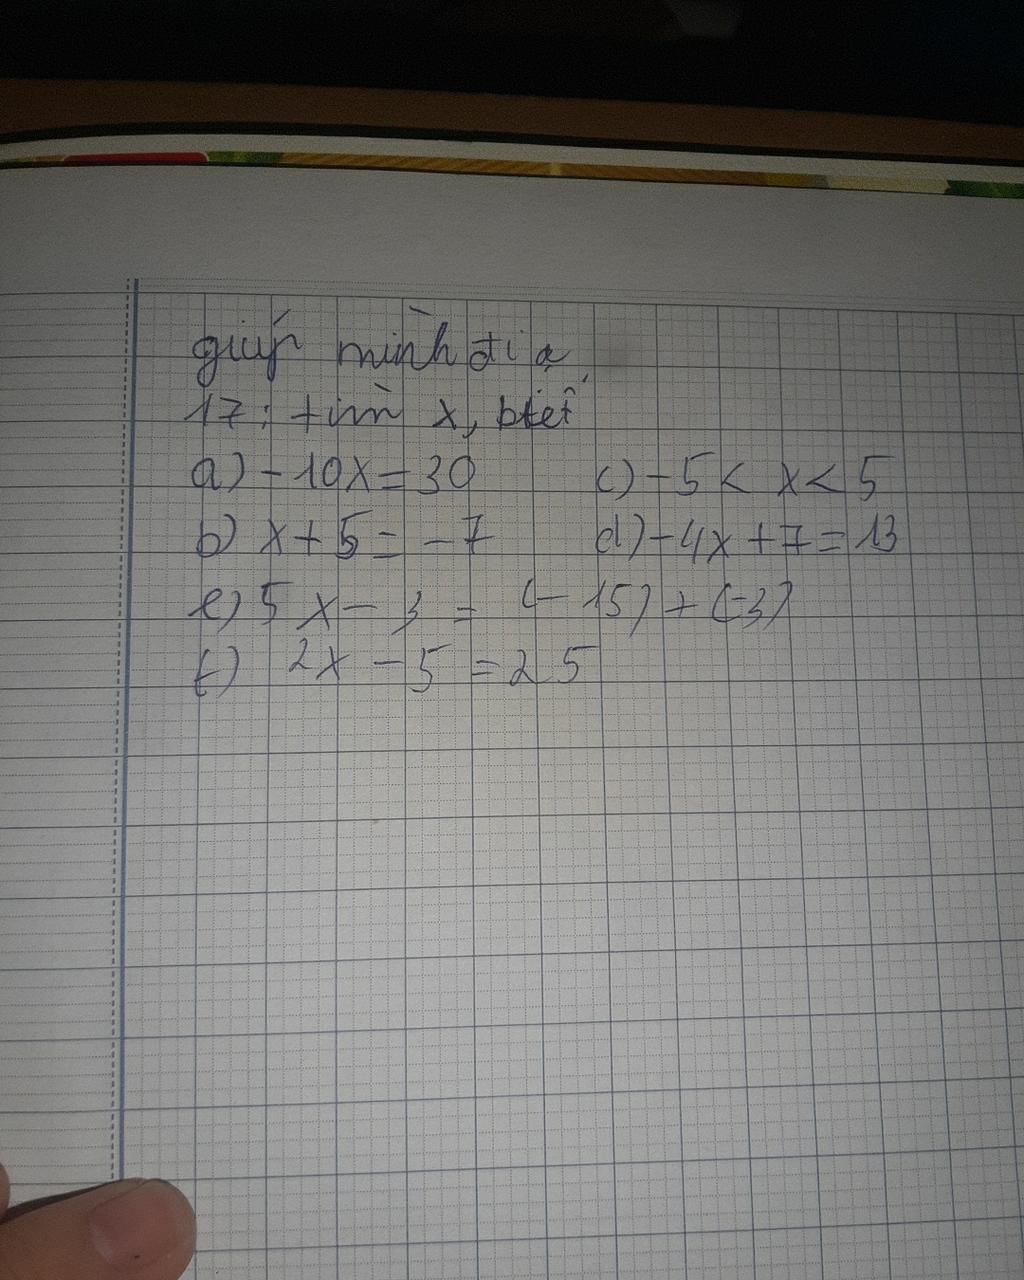 giúp mình đi ạ
17: tìm x, biết
a) -10x = 30 c) -5 < x < 5
b) x + 5 = -7 d) -4x + 7 = 13
e) 5x - 3 = (-15) + (-3)
f) 2x - 5 = 25